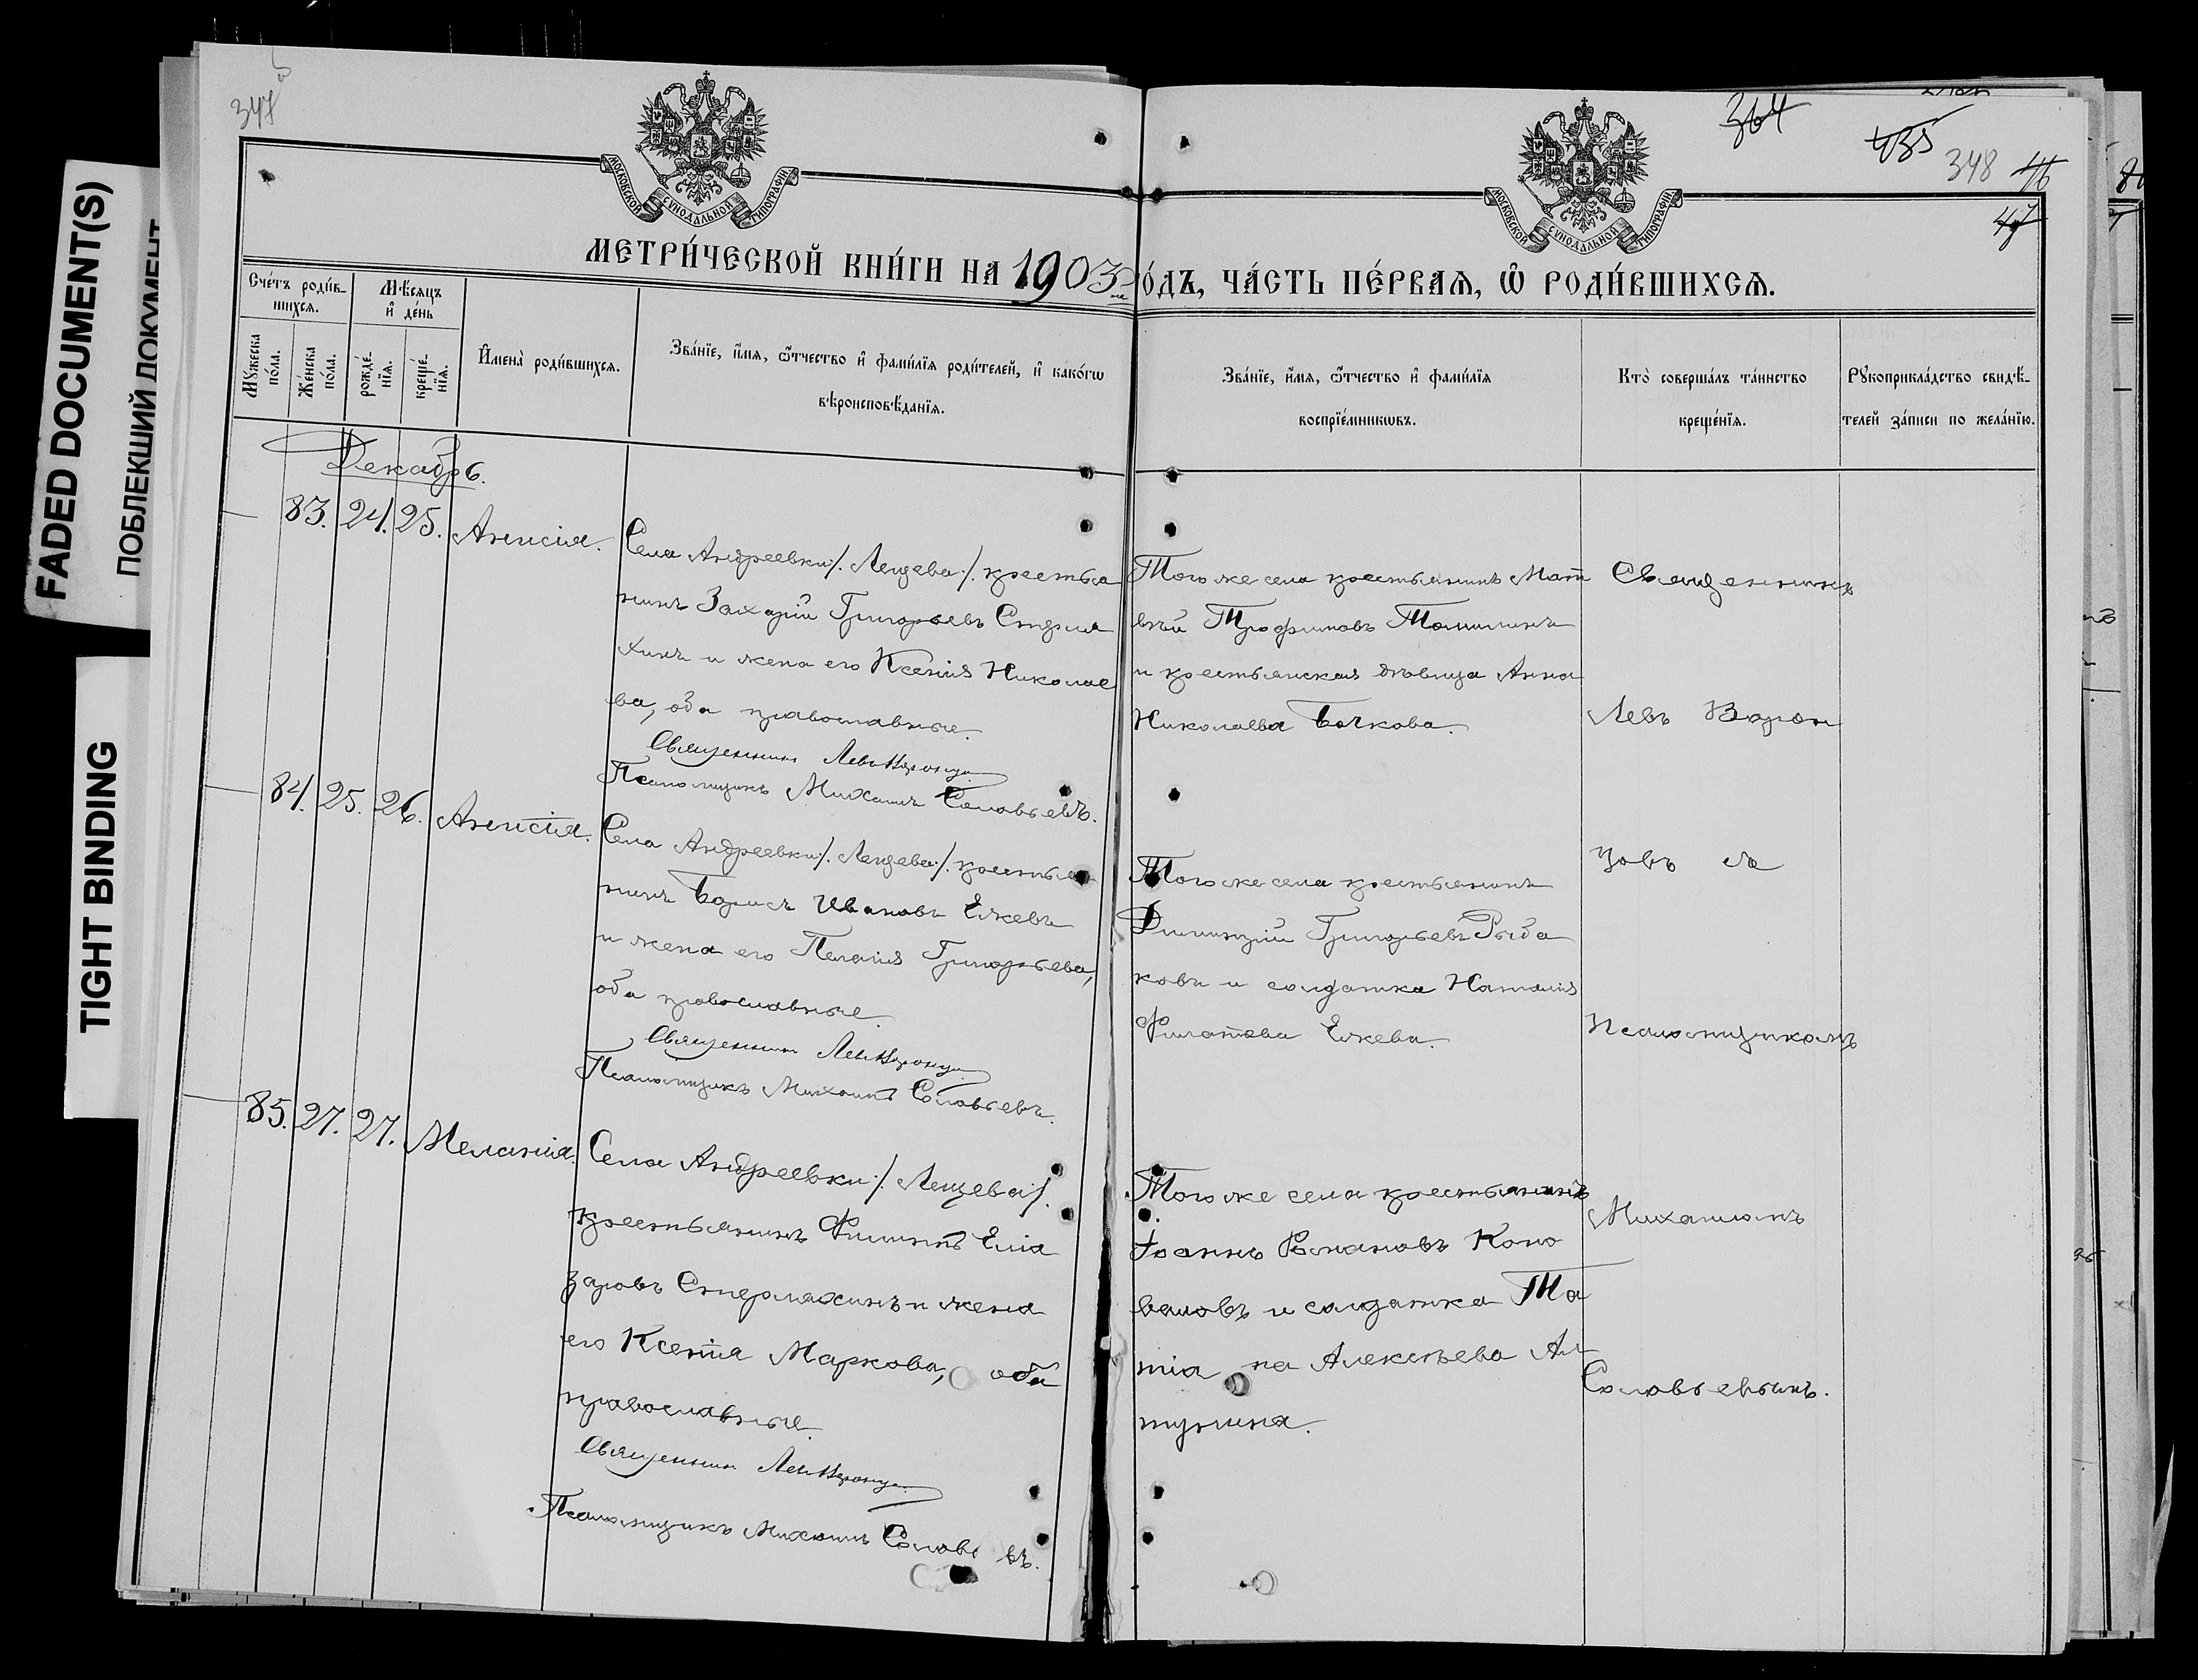 FADED DOCUMENT(S)
ПОБЛЕКШИЙ ДОКУМЕНТ
TIGHT BINDING
347
364
435
348
46
47
МОСКОВСКОЙ СѴНОДАЛЬНОЙ ТИПОГРАФІИ
МОСКОВСКОЙ СѴНОДАЛЬНОЙ ТИПОГРАФІИ
МЕТРИ́ЧЕСКОЙ КНИ́ГИ НА 1903 й
О́ДЪ, ЧА́СТЬ ПЕ́РВАѦ, Ѽ РОДИ́ВШИХСѦ.
Сче́тъ роди́в-
шихсѧ.
Мѣ́сѧцъ
и҆ де́нь
Мꙋ́жеска
по́ла.
Же́нска
по́ла.
рожде́-
нїѧ.
креще́-
нїѧ.
И҆мена̀ роди́вшихсѧ.
Зва́нїе, и҆́мѧ, ѻ҆́тчество и҆ фами́лїѧ роди́телей, и҆ како́гѡ
вѣроисповѣ́данїѧ.
Зва́нїе, и҆́мѧ, ѻ҆́тчество и҆ фами́лїѧ
воспрїе́мникѡвъ.
Кто̀ соверша́лъ та́инство
креще́нїѧ.
Рꙋкоприкла́дство свидѣ́-
телей за́писи по жела́нїю.
Декабрь.
83. 24. 25. Анисія.
Села Андреевки /. Лещева ./. крестья
нинъ Захарій Григорьевъ Стерля
хинъ и жена его Ксенія Николае
ва, оба православные.
Священникъ Левъ Воронцо
Псаломщикъ Михаилъ Соловьевъ.
Того же села крестьянинъ Мат
вѣй Трофимовъ Томилинъ
и крестьянская дѣвица Анна
Николаева Бочкова.
Священникъ
Левъ Ворон
84. 25. 26. Анисія.
Села Андреевки /. Лещева ./. крестья
нинъ Борисъ Ивановъ Ежевъ
и жена его Пелагія Григорьева,
оба православные.
Священникъ Левъ Воронцо
Псаломщикъ Михаилъ Соловьевъ.
Того же села крестьянинъ
Димитрій Григорьевъ Рыба
ковъ и солдатка Наталія
Филатова Ежева.
цовъ съ
псаломщикомъ
85. 27. 27. Меланія.
Села Андреевки /. Лещева ./.
крестьянинъ Филиппъ Еліа
заровъ Стерляхинъ и жена
его Ксенія Маркова, оба
православные.
Священникъ Левъ Воронцо
Псаломщикъ Михаилъ Соловьевъ.
Того же села крестьянинъ
Іоаннъ Романовъ Коно
валовъ и солдатка Та
тіана Алексѣева Ал
тунина.
Михаиломъ
Соловьевымъ.